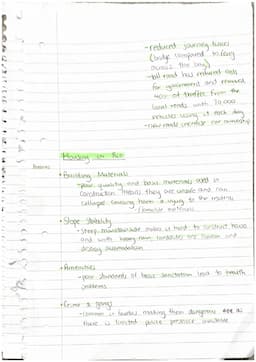 - reduced journey times
(bridge compared to ferry
across the bay)
- toll road has reduced costs
for government and removed
40% of traffic from the
local roads with 70,000
vehicles using it each day
- new roads increase car ownership
Housing in Rio
• Building Materials
- poor quality and basic materials used in
construction means they are unsafe and can
collapse causing harm & injury to the
• Slope Stability
- steep makes it hard to construct houses
and with heavy rain landslides are common and
destroy
• Amenities
- poor standards of basic sanitation lead to health
problems
• Crime & gangs
- common in favelas making them dangerous
there is limited police presence available